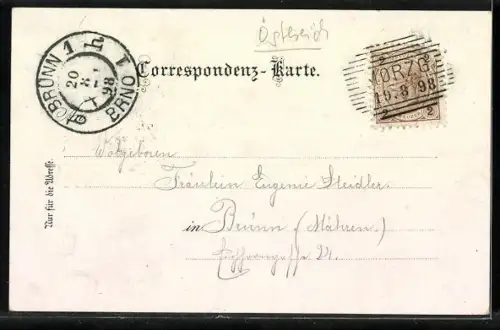 Östreich
BRÜNN 1 h
20
98
BRNO 1
Correspondenz-Karte.
2 2
KORZO
15.8.98
2 2
Nur für die Adresse.
Wolgeboren
Fräulein Eugenie Steidler
in Brünn (Mähren)
24.